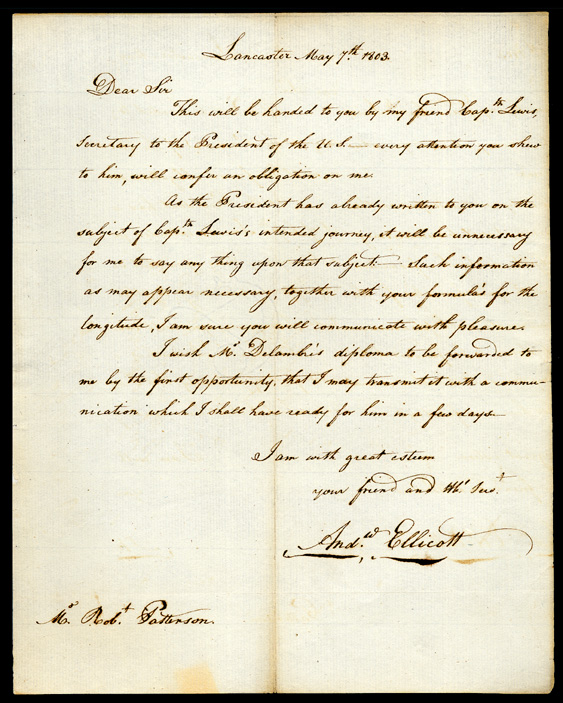 Lancaster May 7.th 1803.
Dear Sir
This will be handed to you by my friend Capt.n Lewis,
Secretary to the President of the U. S.— every attention you shew
to him, will confer an obligation on me.
As the President has already written to you on the
subject of Capt.n Lewis's intended journey, it will be unnecessary
for me to say any thing upon that subject:— Such information
as may appear necessary, together with your formula's for the
longitude, I am sure you will communicate with pleasure.
I wish Mr. Delambre's diploma to be forwarded to
me by the first opportunity, that I may transmit it with a commu-
nication which I shall have ready for him in a few days.—
I am with great esteem
your friend and Hbl. Servt.
And.w Ellicott
Mr. Robt. Patterson.